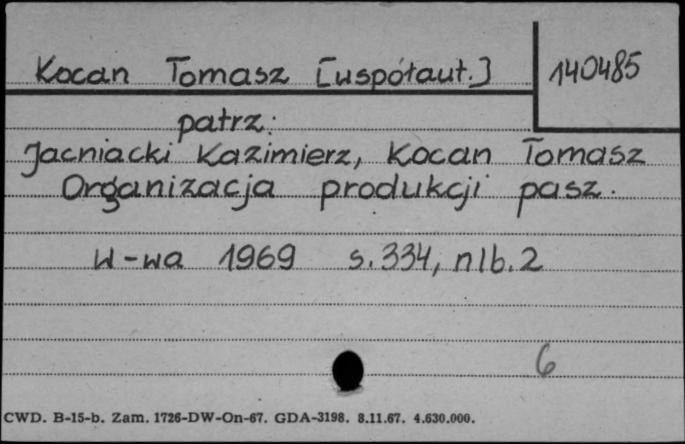 Kocan Tomasz [współaut.] 140485
patrz:
Jacniacki Kazimierz, Kocan Tomasz
Organizacja produkcji pasz.
W-wa 1969 s. 334, nlb. 2
6
CWD. B-15-b. Zam. 1726-DW-On-67. GDA-3198. 8.11.67. 4.630.000.